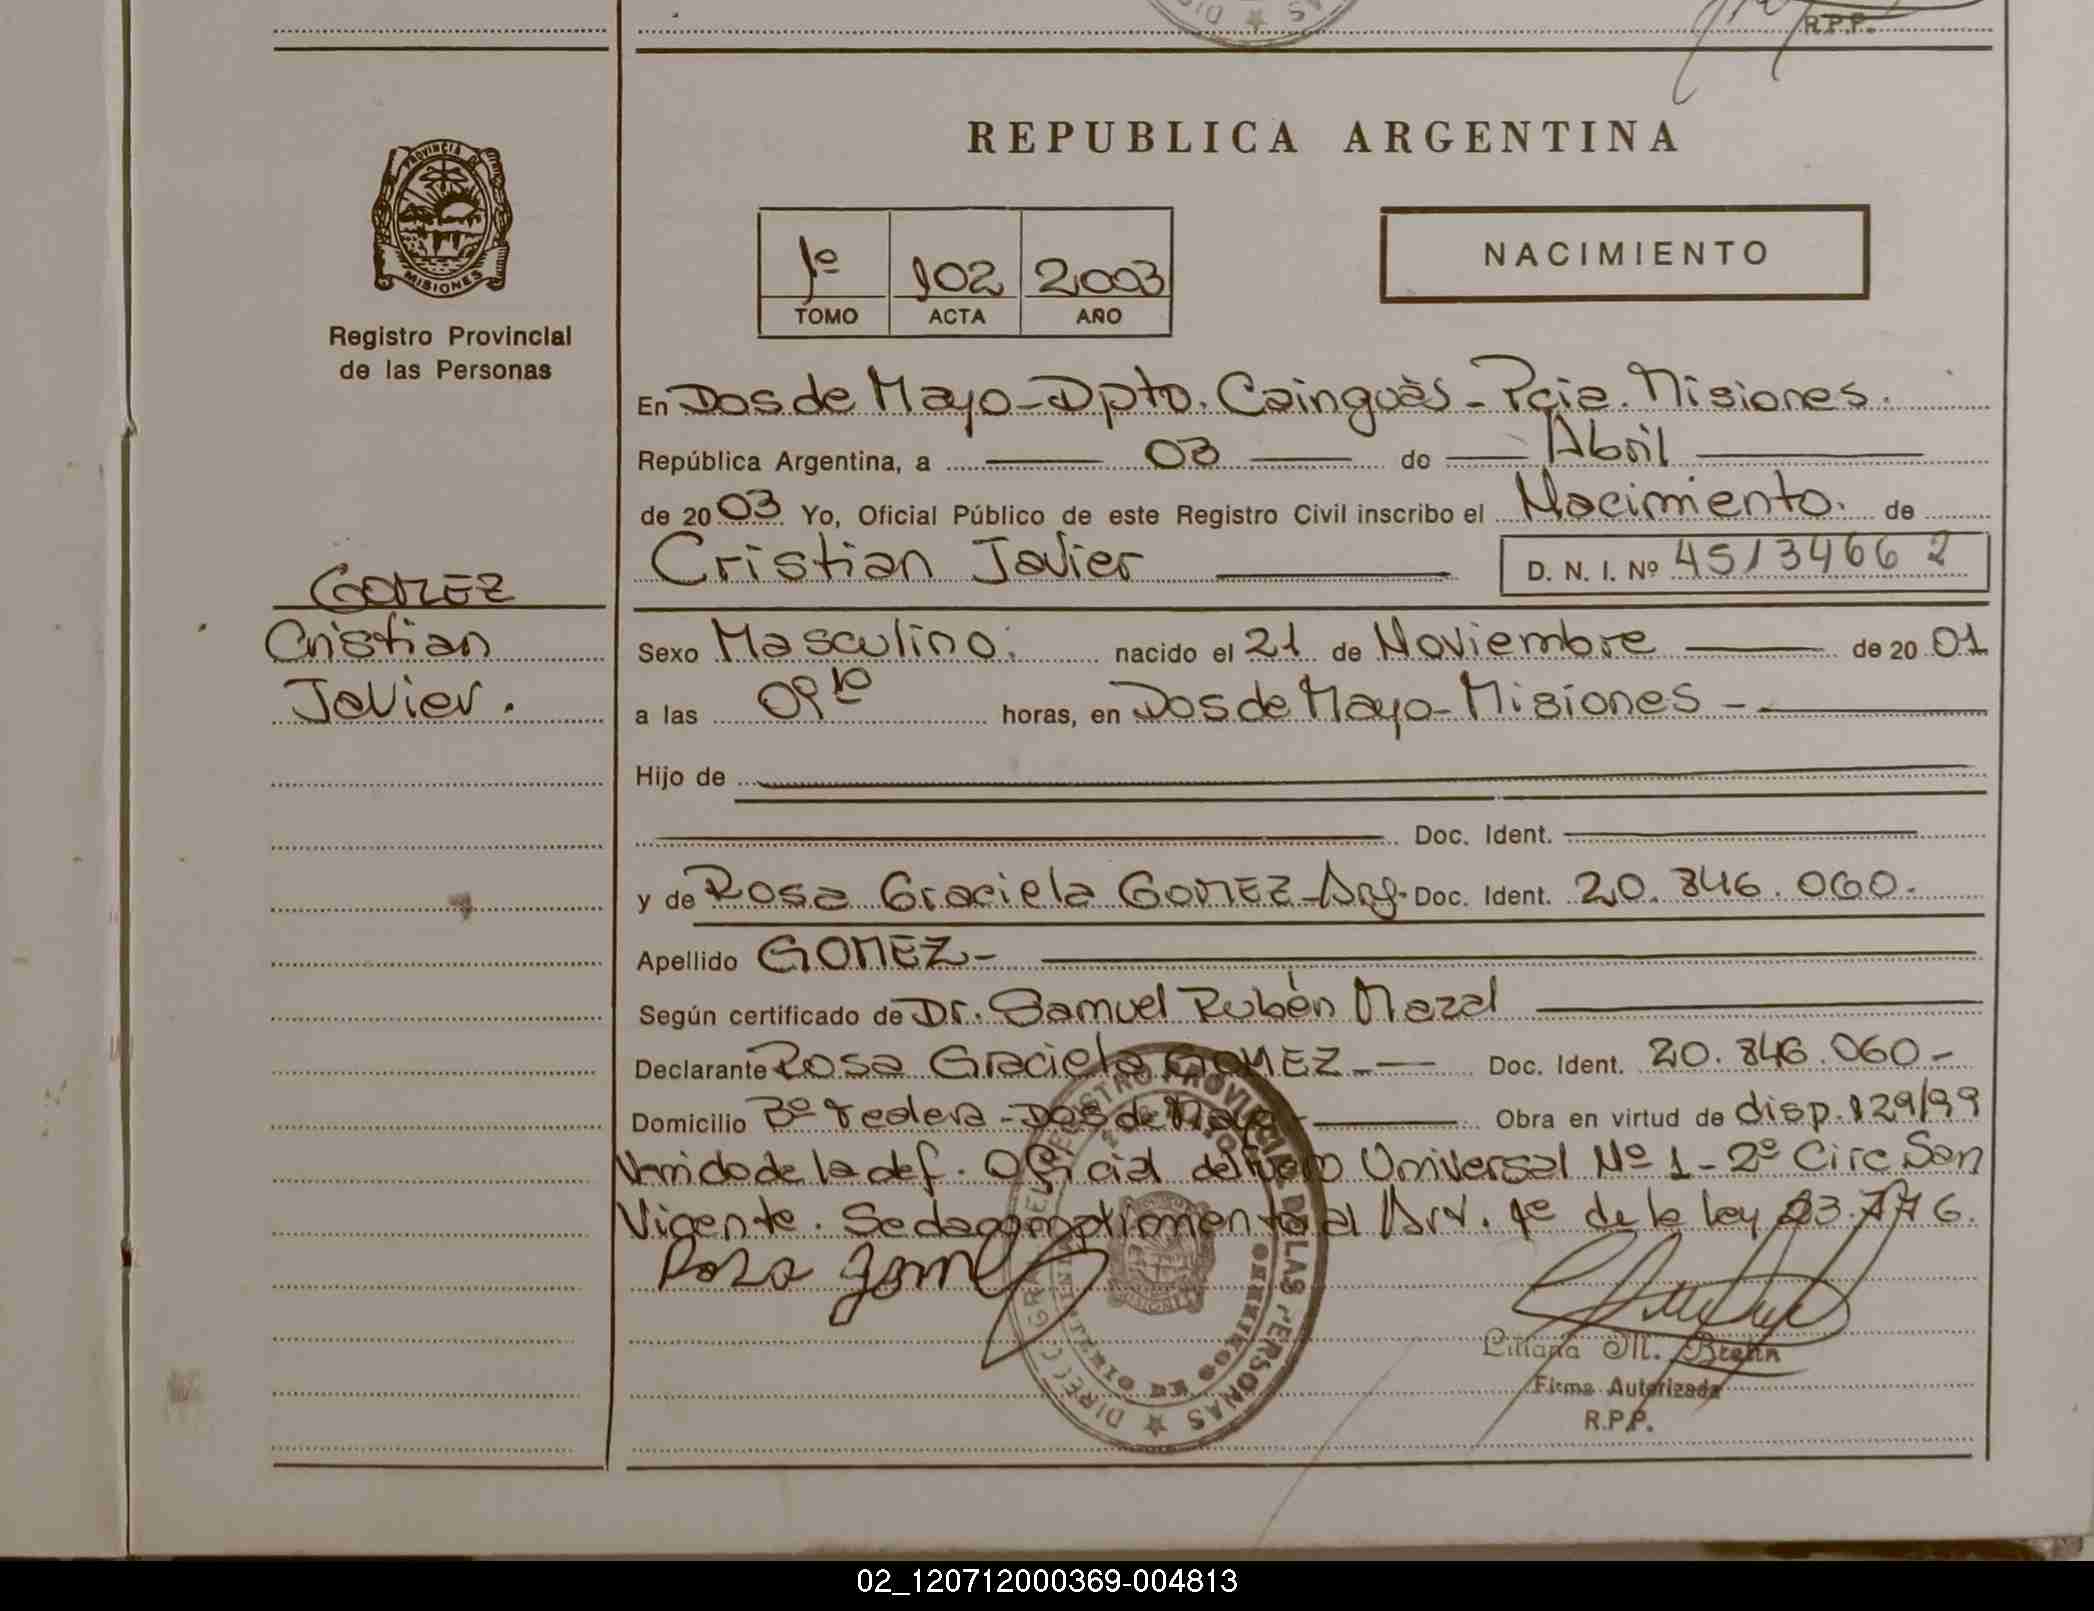 R.P.P.
PROVINCIA DE
MISIONES
Registro Provincial
de las Personas
REPUBLICA ARGENTINA
1º 102 2003
TOMO ACTA AÑO
NACIMIENTO
En Dos de Mayo - Dpto. Cainguàs - Pcia. Misiones.
República Argentina, a 03 de Abril
de 2003 Yo, Oficial Público de este Registro Civil inscribo el Nacimiento. de
Cristian Javier D. N. I. Nº 45134662
GOMEZ
Cristian
Javier.
Sexo Masculino. nacido el 21 de Noviembre de 2001
a las 09 10 horas, en Dos de Mayo - Misiones -
Hijo de
Doc. Ident.
y de Rosa Graciela GOMEZ - Arg. Doc. Ident. 20.846.060.
Apellido GOMEZ -
Según certificado de Dr. Samuel Rubén Mazal
Declarante Rosa Graciela GOMEZ - Doc. Ident. 20.846.060 -
Domicilio Bº - Dos de Mayo - Obra en virtud de disp. 129/99
de la def. Oficial del Fuero Universal Nº 1 - 2º Circ San
Vicente. Se da cumplimento al Art. 1º de la ley 23.776.
Rosa Gomez
Liliana M. Brehn
Firma Autorizada
R.P.P.
02_120712000369-004813